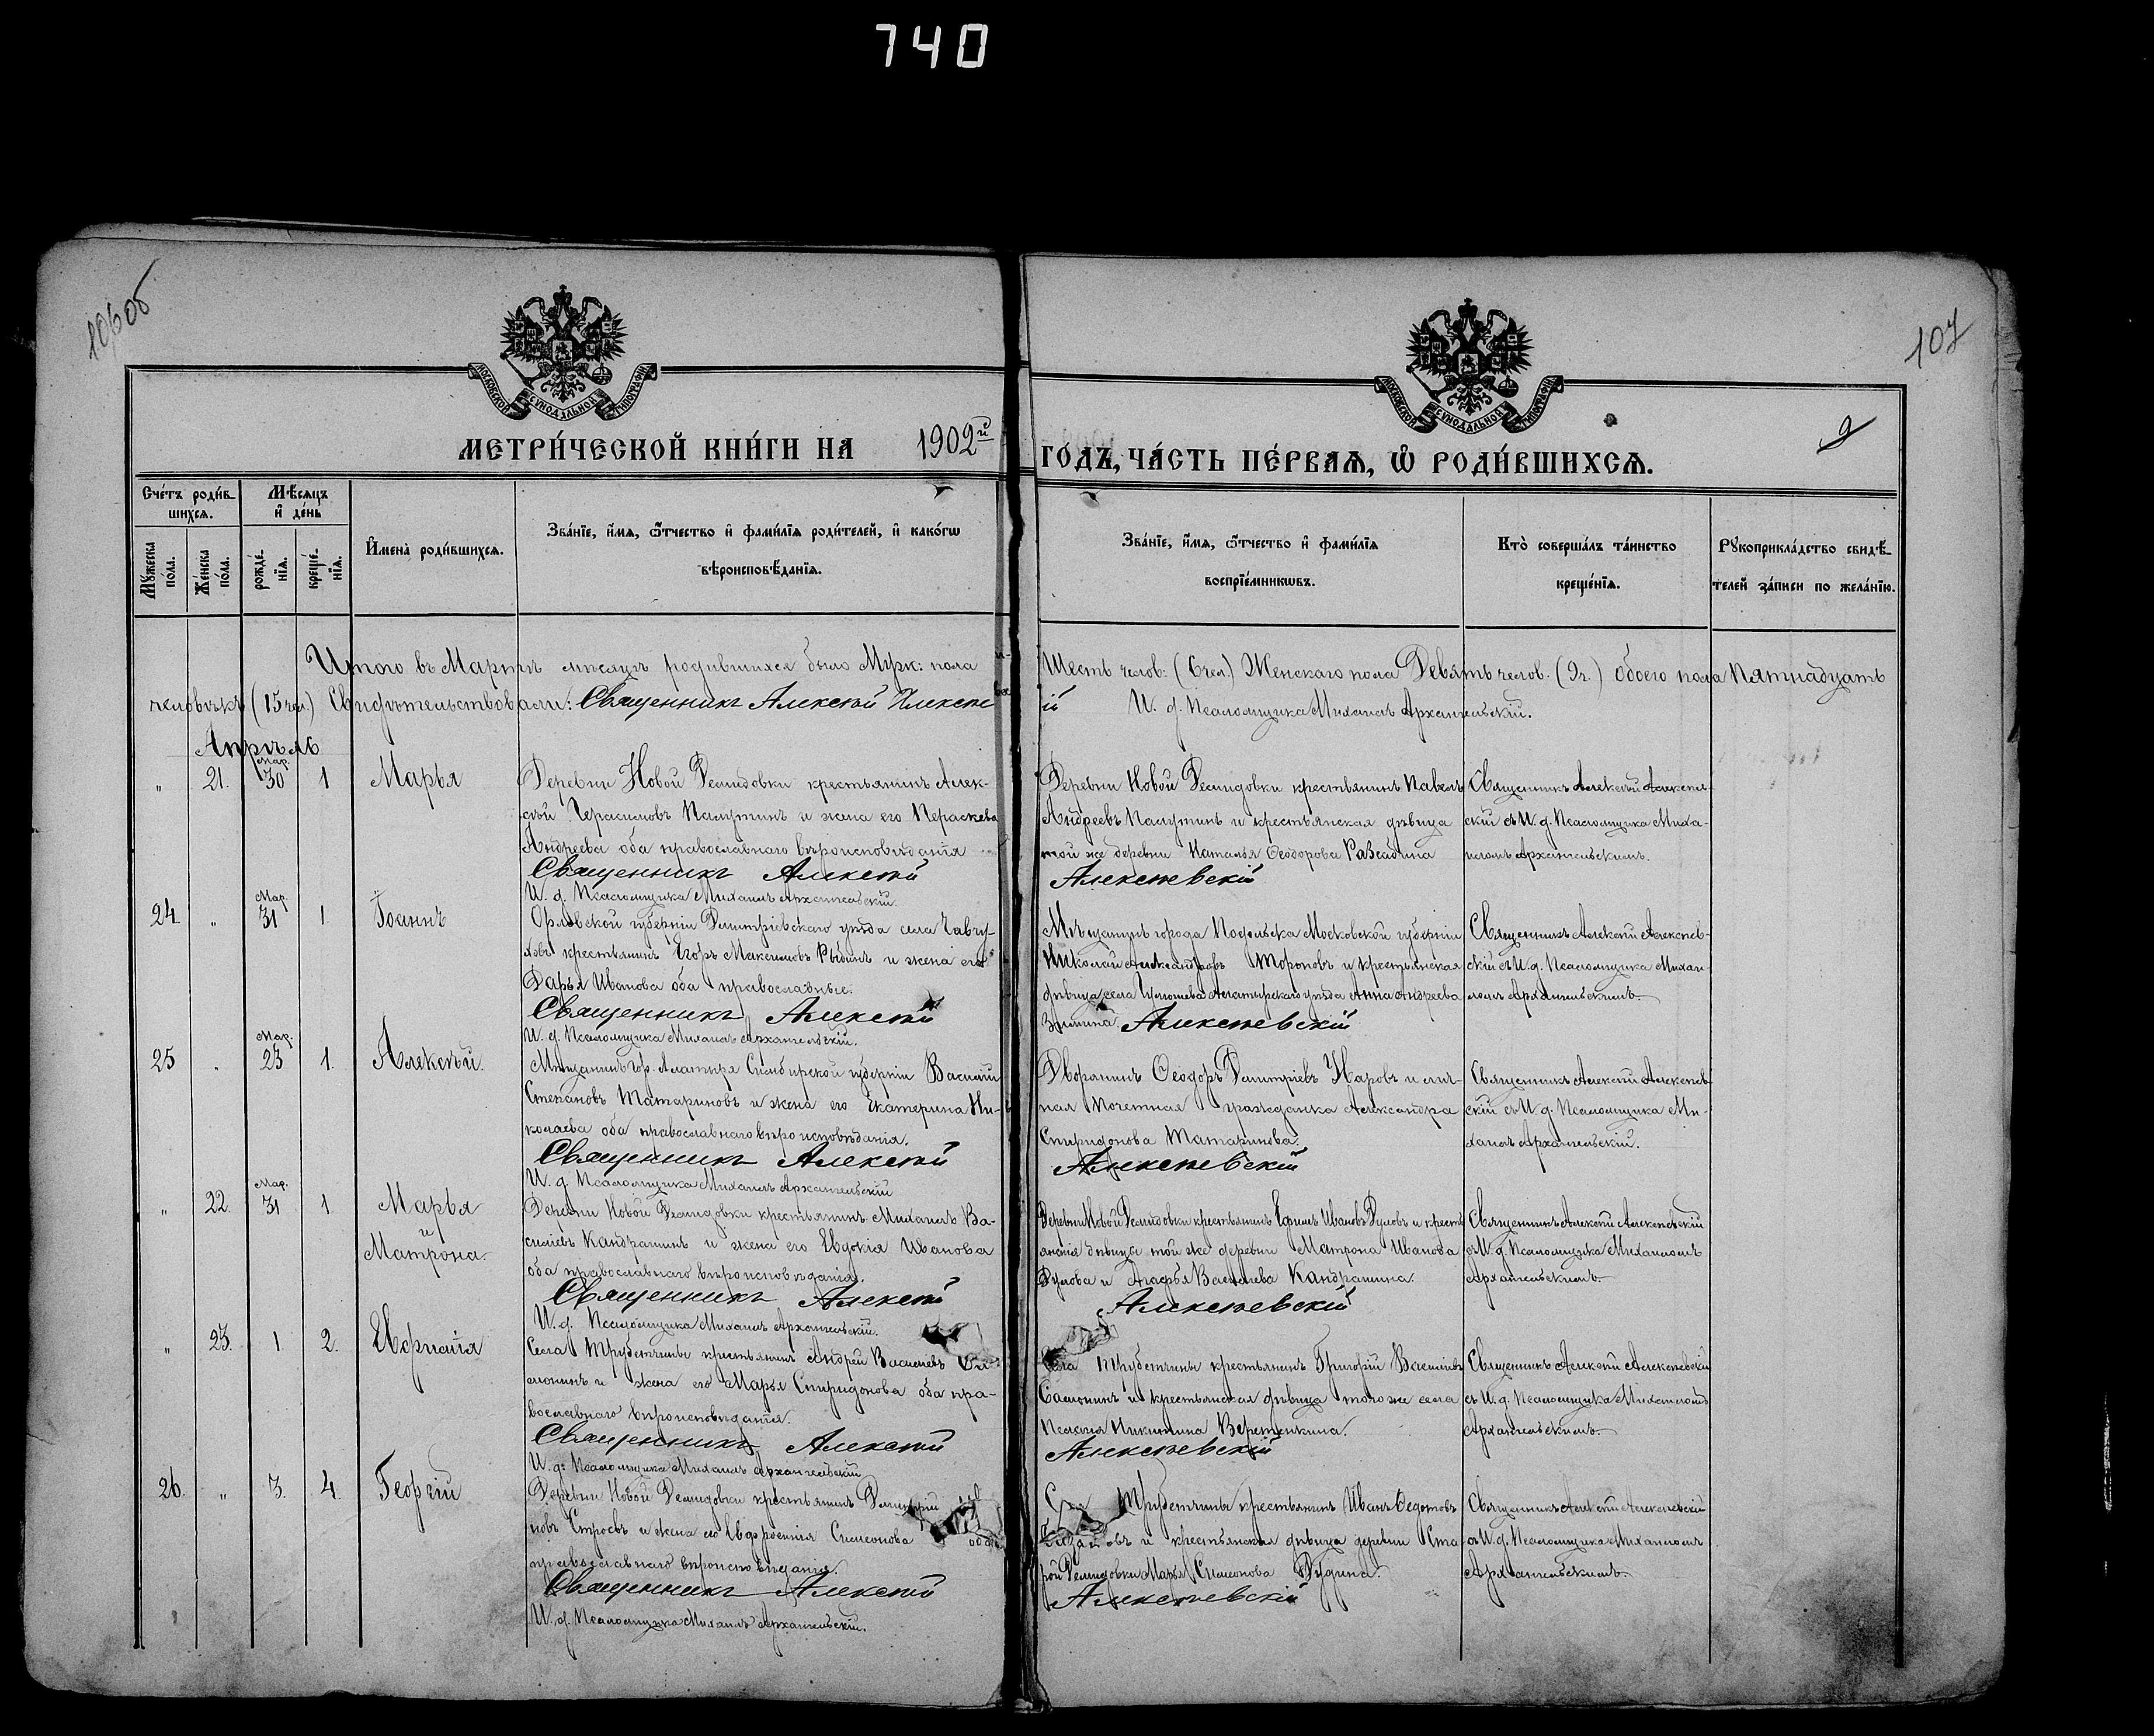 740
106об
107
МОСКОВСКОЙ СѴНОДАЛЬНОЙ ТИПОГРАФІИ
МОСКОВСКОЙ СѴНОДАЛЬНОЙ ТИПОГРАФІИ
МЕТРИ́ЧЕСКОЙ КНИ́ГИ НА 1902й ГО́ДЪ, ЧА́СТЬ ПЕ́РВАѦ, Ѡ РОДИ́ВШИХСѦ.
9
Сче́тъ роди́в-
шихсѧ.
Мѣ́сѧцъ
и҆ де́нь
Мꙋ́жеска
по́ла.
Же́нска
по́ла.
рожде́-
нїѧ.
креще́-
нїѧ.
И҆мена̀ роди́вшихсѧ.
Зва́нїе, и҆́мѧ, ѻ҆́тчество и҆ фами́лїѧ роди́телей, и҆ како́гѡ
вѣроисповѣ́данїѧ.
Зва́нїе, и҆́мѧ, ѻ҆́тчество и҆ фами́лїѧ
воспрїе́мникѡвъ.
Кто̀ соверша́лъ та́инство
креще́нїѧ.
Рꙋкоприкла́дство свидѣ́-
телей за́писи по жела́нїю.
Итого въ Мартѣ мѣсяцѣ родившихся было Муж: пола Шесть челов: (6 чел.) Женскаго пола Девять челов. (9 ч.) обоего пола Пятнадцать
человѣкъ (15 чел.) Свидѣтельствовали: Священникъ Алексѣй Алексѣевскій И. д. Псаломщика Михаилъ Архангельскій.
Апрѣль
" 21. Мар. 30 1 Марья
Деревни Новой Демидовки крестьянинъ Алек-
сѣй Герасимовъ Палутинъ и жена его Параскева
Андреева оба православнаго вѣроисповѣданія
Священникъ Алексѣй
И. д. Псаломщика Михаилъ Архангельскій.
Деревни Новой Демидовки крестьянинъ Павелъ
Андреевъ Палутинъ и крестьянская дѣвица
той же деревни Наталья Ѳеодорова
Алексѣевскій
Священникъ Алексѣй Алексѣев-
скій съ И. д. Псаломщика Миха-
иломъ Архангельскимъ.
24. " Мар. 31 1. Іоаннъ
Орловской губерніи Дмитріевскаго уѣзда села
крестьянинъ Егоръ Максимовъ Рыбинъ и жена его
Дарья Иванова оба православные.
Священникъ Алексѣй
И. д. Псаломщика Михаилъ Архангельскій.
Мѣщанинъ города Подольска Московской губерніи
Николай Александровъ Тороповъ и крестьянская
дѣвица села Алатырскаго уѣзда Анна Андреева
Зимина. Алексѣевскій
Священникъ Алексѣй Алексѣев-
скій съ И. д. Псаломщика Михаи-
ломъ Архангельскимъ.
25 " Мар. 23 1. Алексѣй.
Мѣщанинъ гор. Алатыря Симбирской губерніи Василій
Степановъ Татариновъ и жена его Екатерина Ни-
колаева оба православнаго вѣроисповѣданія.
Священникъ Алексѣй
И. д. Псаломщика Михаилъ Архангельскій
Дворянинъ Ѳеодоръ Дмитріевъ Жаровъ и лич-
ная почетная гражданка Александра
Спиридонова Татаринова.
Алексѣевскій
Священникъ Алексѣй Алексѣев-
скій съ И. д. Псаломщика Ми-
хаилъ Архангельскій.
" 22. Мар. 31 1. Марья
и
Матрона.
Деревни Новой Демидовки крестьянинъ Михаилъ Ва-
силіевъ Кандрашинъ и жена его Евдокія Иванова
оба православнаго вѣроисповѣданія.
Священникъ Алексѣй
И. д. Псаломщика Михаилъ Архангельскій.
Деревни Новой Демидовки крестьянинъ Ефимъ Ивановъ и кресть-
янскія дѣвицы той же деревни Матрона Иванова
и Агафья Васильева Кандрашина.
Алексѣевскій
Священникъ Алексѣй Алексѣевскій
съ И. д. Псаломщика Михаиломъ
Архангельскимъ.
" 23. 1. 2. Евфимія
Села Трубетчины крестьянинъ Андрей Васильевъ Са-
монинъ и жена его Марья Спиридонова оба пра-
вославнаго вѣроисповѣданія.
Священникъ Алексѣй
И. д. Псаломщика Михаилъ Архангельскій
Села Трубетчины крестьянинъ Григорій Васильевъ
Самонинъ и крестьянская дѣвица того же села
Пелагія Никитина Веретенкина.
Алексѣевскій
Священникъ Алексѣй Алексѣевскій
съ И. д. Псаломщика Михаиломъ
Архангельскимъ.
26. " 3. 4. Георгій
Деревни Новой Демидовки крестьянинъ Димитрій
новъ Строевъ и жена его Евфросинія Симеонова оба
православнаго вѣроисповѣданія.
Священникъ Алексѣй
И. д. Псаломщика Михаилъ Архангельскій.
Трубетчины крестьянинъ Иванъ Ѳедотовъ
и крестьянская дѣвица деревни Ста-
рой Демидовки Марья Симеонова Дудина.
Алексѣевскій
Священникъ Алексѣй Алексѣевскій
съ И. д. Псаломщика Михаиломъ
Архангельскимъ.